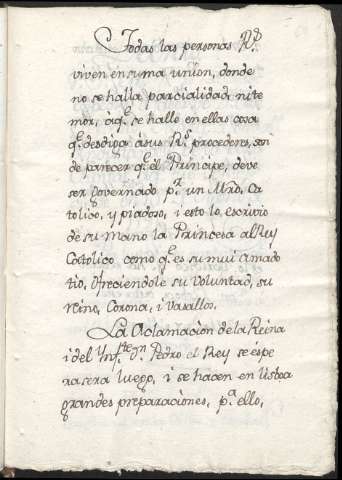 Todas las personas R.s
viven en suma union, donde
no se halla parcialidad, ni te
mor, á q.e se halle en ellas cosa
q.e desdiga á sus R.s procederes, son
de parecer q.e él Principe, deve
ser Governado p.r un Mro, Ca
tolico, y piadoso, i esto lo, escrivio
de su mano la Princesa al Rey
Catolico como q.e es su mui amado
tio, Ofreciendole su Voluntad, su
reino, Corona, i Vasallos.
La Aclamacion de la Reina
i del Ynf.te D.n Pedro el Rey se éspe
ra sera luego, i se hacen en Lisboa
grandes preparaciones, p.a ello,